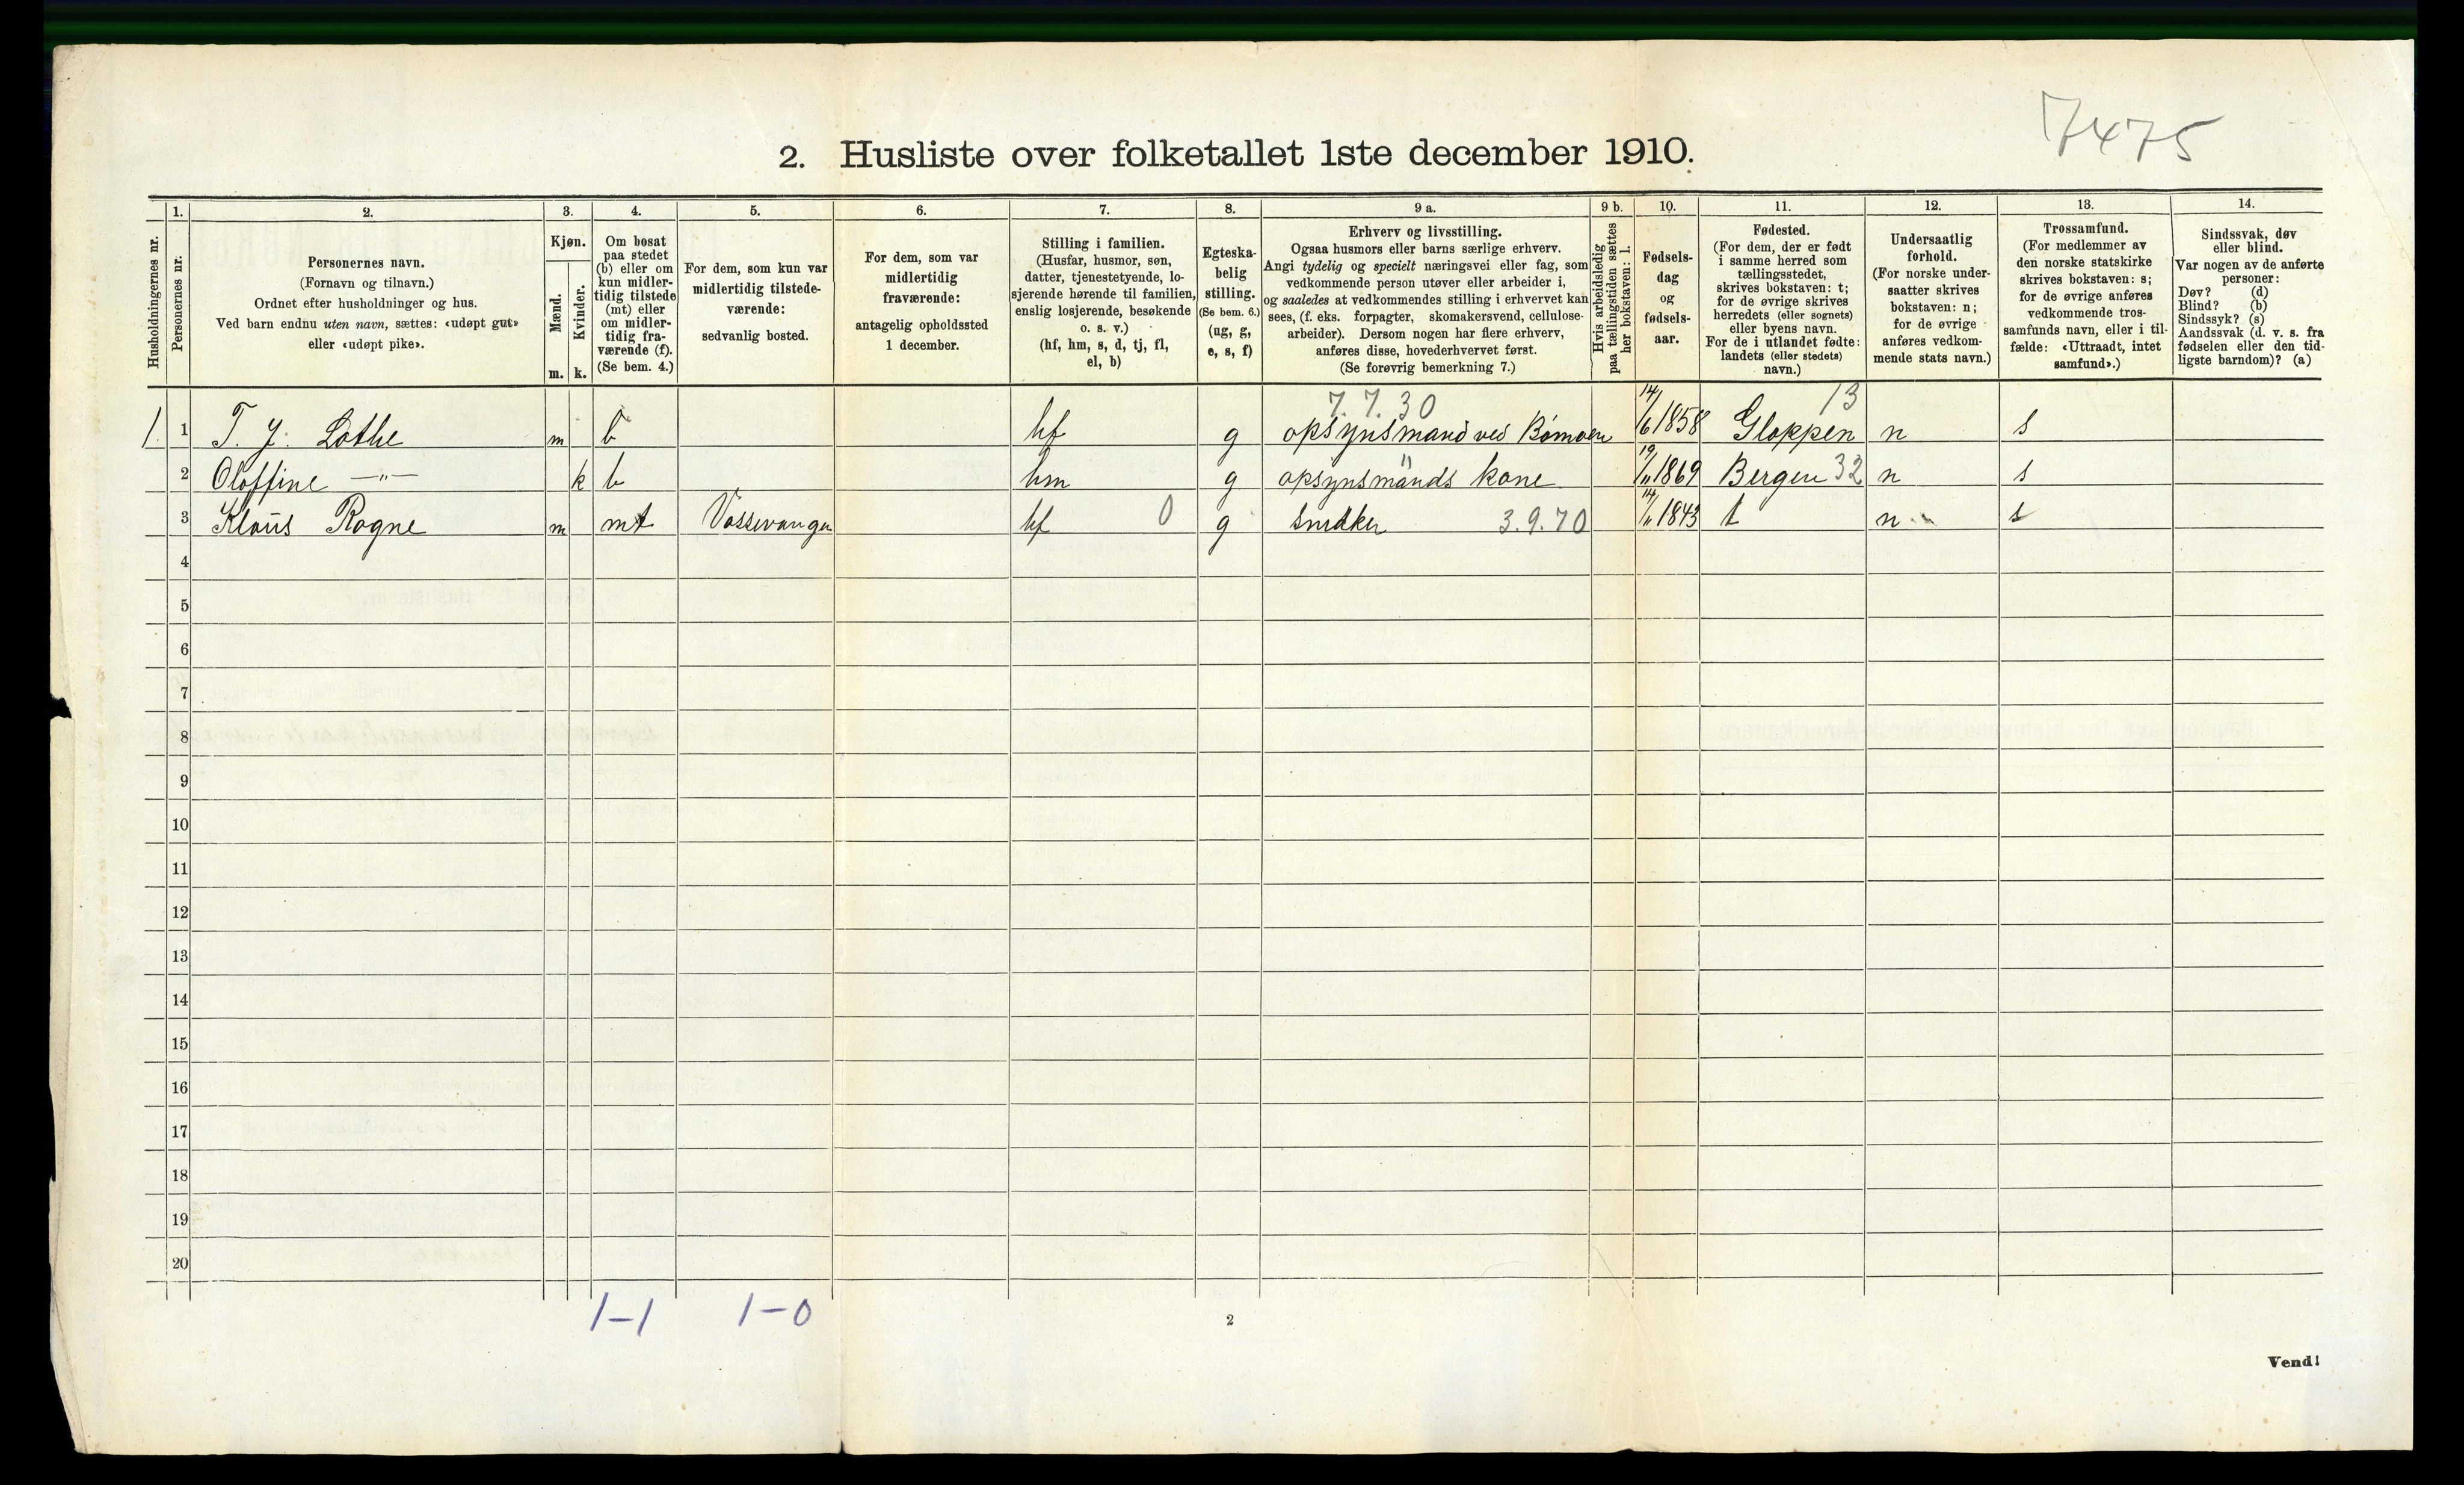 7475
2. Husliste over folketallet 1ste december 1910.
Husholdningernes nr.
1.
Personernes nr.
2.
Personernes navn.
(Fornavn og tilnavn.)
Ordnet efter husholdninger og hus.
Ved barn endnu uten navn, sættes: «udøpt gut»
eller «udøpt pike».
3.
Kjøn.
Mænd.
Kvinder.
m. k.
4.
Om bosat
paa stedet
(b) eller om
kun midler-
tidig tilstede
(mt) eller
om midler-
tidig fra-
værende (f).
(Se bem. 4.)
5.
For dem, som kun var
midlertidig tilstede-
værende:
sedvanlig bosted.
6.
For dem, som var
midlertidig
fraværende:
antagelig opholdssted
1 december.
7.
Stilling i familien.
(Husfar, husmor, søn,
datter, tjenestetyende, lo-
sjerende hørende til familien,
enslig losjerende, besøkende
o. s. v.)
(hf, hm, s, d, tj, fl,
el, b)
8.
Egteska-
belig
stilling.
(Se bem. 6.)
(ug, g,
e, s, f)
9 a.
Erhverv og livsstilling.
Ogsaa husmors eller barns særlige erhverv.
Angi tydelig og specielt næringsvei eller fag, som
vedkommende person utøver eller arbeider i,
og saaledes at vedkommendes stilling i erhvervet kan
sees, (f. eks. forpagter, skomakersvend, cellulose-
arbeider). Dersom nogen har flere erhverv,
anføres disse, hovederhvervet først.
(Se forøvrig bemerkning 7.)
9 b.
Hvis arbeidsledig
paa tællingstiden sættes
her bokstaven: l.
10.
Fødsels-
dag
og
fødsels-
aar.
11.
Fødested.
(For dem, der er født
i samme herred som
tællingsstedet,
skrives bokstaven: t;
for de øvrige skrives
herredets (eller sognets)
eller byens navn.
For de i utlandet fødte:
landets (eller stedets)
navn.)
12.
Undersaatlig
forhold.
(For norske under-
saatter skrives
bokstaven: n;
for de øvrige
anføres vedkom-
mende stats navn.)
13.
Trossamfund.
(For medlemmer av
den norske statskirke
skrives bokstaven: s;
for de øvrige anføres
vedkommende tros-
samfunds navn, eller i til-
fælde: «Uttraadt, intet
samfund».)
14.
Sindssvak, døv
eller blind.
Var nogen av de anførte
personer:
Døv? (d)
Blind? (b)
Sindssyk? (s)
Aandssvak (d. v. s. fra
fødselen eller den tid-
ligste barndom)? (a)
7.7.30 13
1. 1 T. J. Lothe m b hf g opsynsmand ved Bømoen 14/6 1858 Gloppen n s
2 Oloffine —"— k b hm g opsynsmands kone 19/11 1869 Bergen 32 n s
3 Klaus Rogne m mt Vossevangen hf 0 g snedker 3.9.70 1843 t n s
4
5
6
7
8
9
10
11
12
13
14
15
16
17
18
19
20
1-1 1-0
2
Vend!